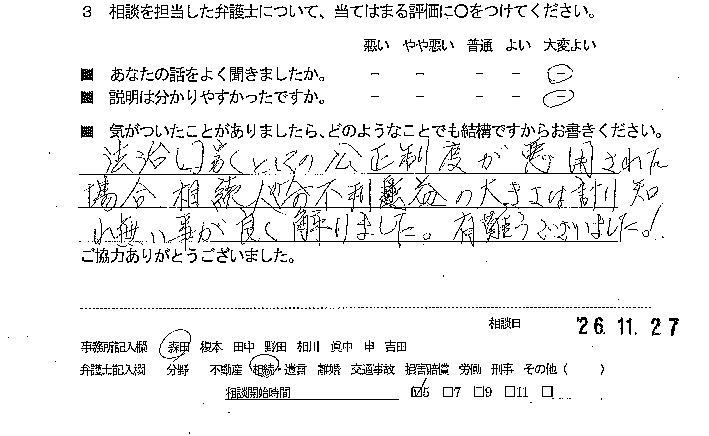 3 相談を担当した弁護士について、当てはまる評価に○をつけてください。
悪い やや悪い 普通 よい 大変よい
■ あなたの話をよく聞きましたか。 － － － － －
■ 説明は分かりやすかったですか。 － － － － －
■ 気がついたことがありましたら、どのようなことでも結構ですからお書きください。
法治国家としての公正制度が悪用された
場合相続人の不利益の大きさは計り知
れ無い事が良く解りました。有難うございました!
ご協力ありがとうございました。
相談日 '26.11.27
事務所記入欄 森田 榎本 田中 野田 相川 眞中 申 吉田
弁護士記入欄 分野 不動産 相続・遺言 離婚 交通事故 損害賠償 労働 刑事 その他( )
相談開始時間 ☑5 □7 □9 □11 □